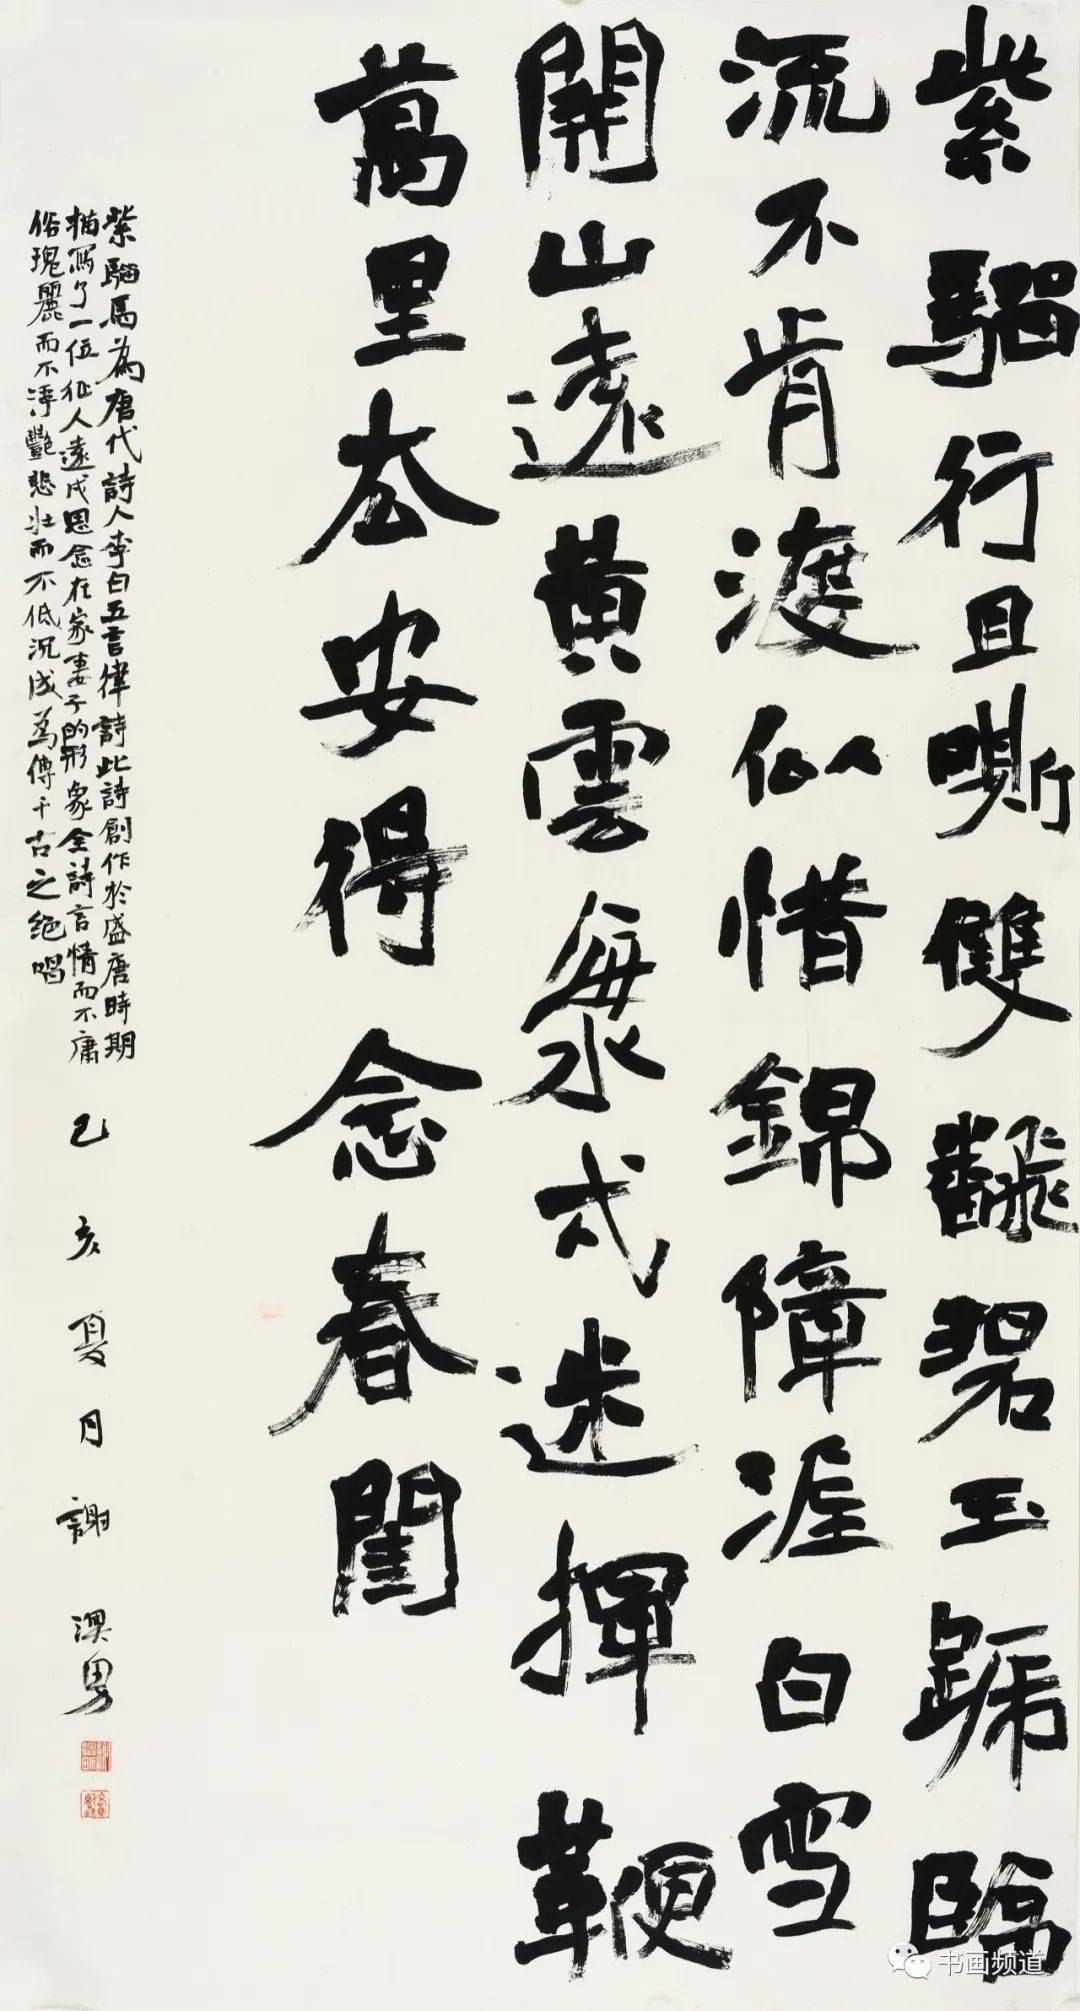 紫騮行且嘶雙飜碧玉蹄臨
流不肯渡似惜錦障泥白雪
開山遠黃雲海戍迷揮鞭
萬里去安得念春閨
紫騮馬為唐代詩人李白五言律詩此詩創作於盛唐時期
描寫了一位征人遠戍思念在家妻子的形象全詩言情而不庸
俗瑰麗而不浮艷悲壯而不低沉成為傳千古之絕唱
己亥夏月謝澳勇
书画频道